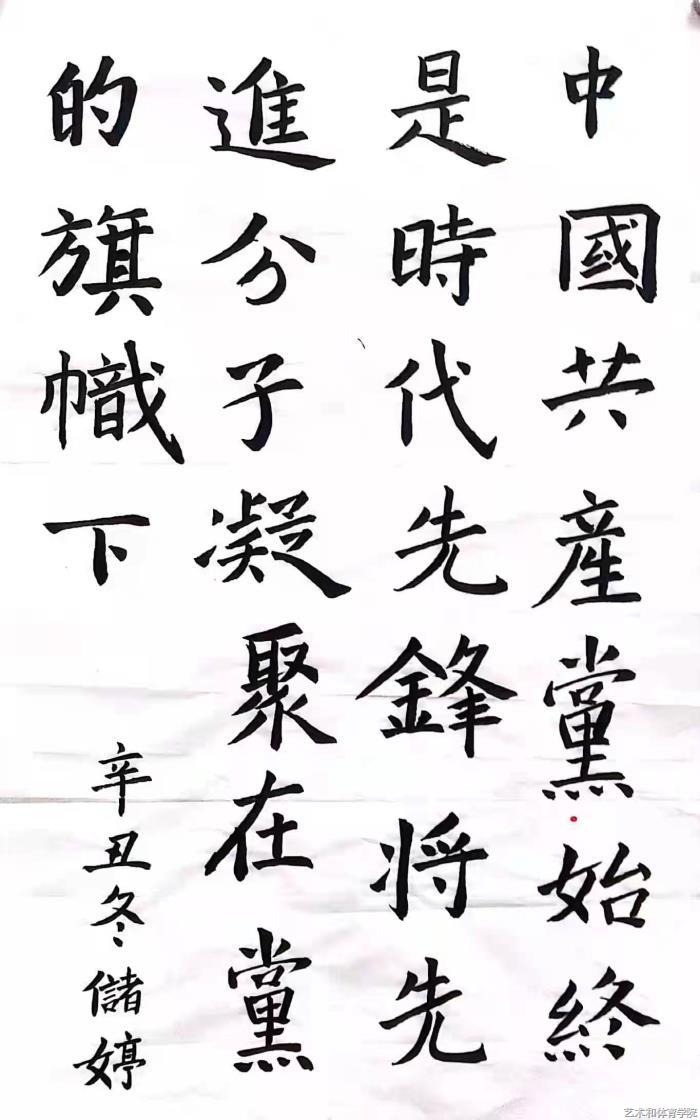 中國共產黨始終
是時代先鋒将先
進分子凝聚在黨
的旗幟下
辛丑冬儲婷
艺术和体育学院